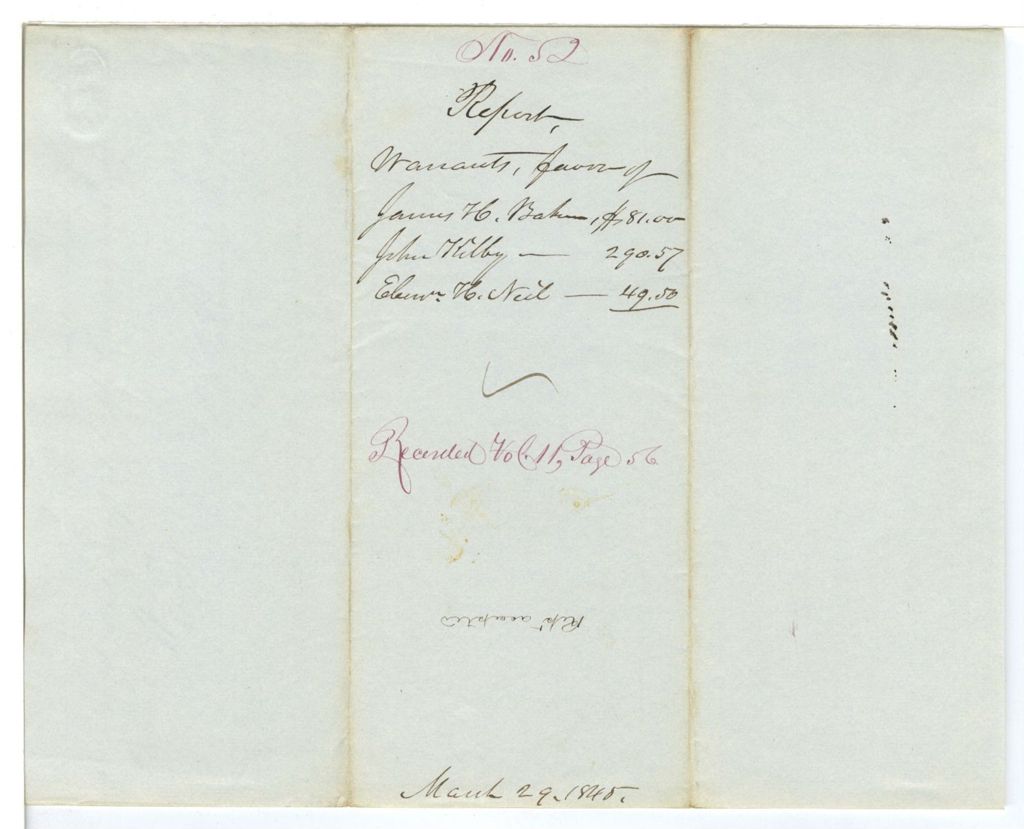 No. 52
Report,
Warrants, favor of
James H. Baker, $81.00
John Kilby — 290.57
Ebenr. H. Neil — 49.50
Recorded Vol. 11, Page 56
Rept accepted
March 29. 1845.